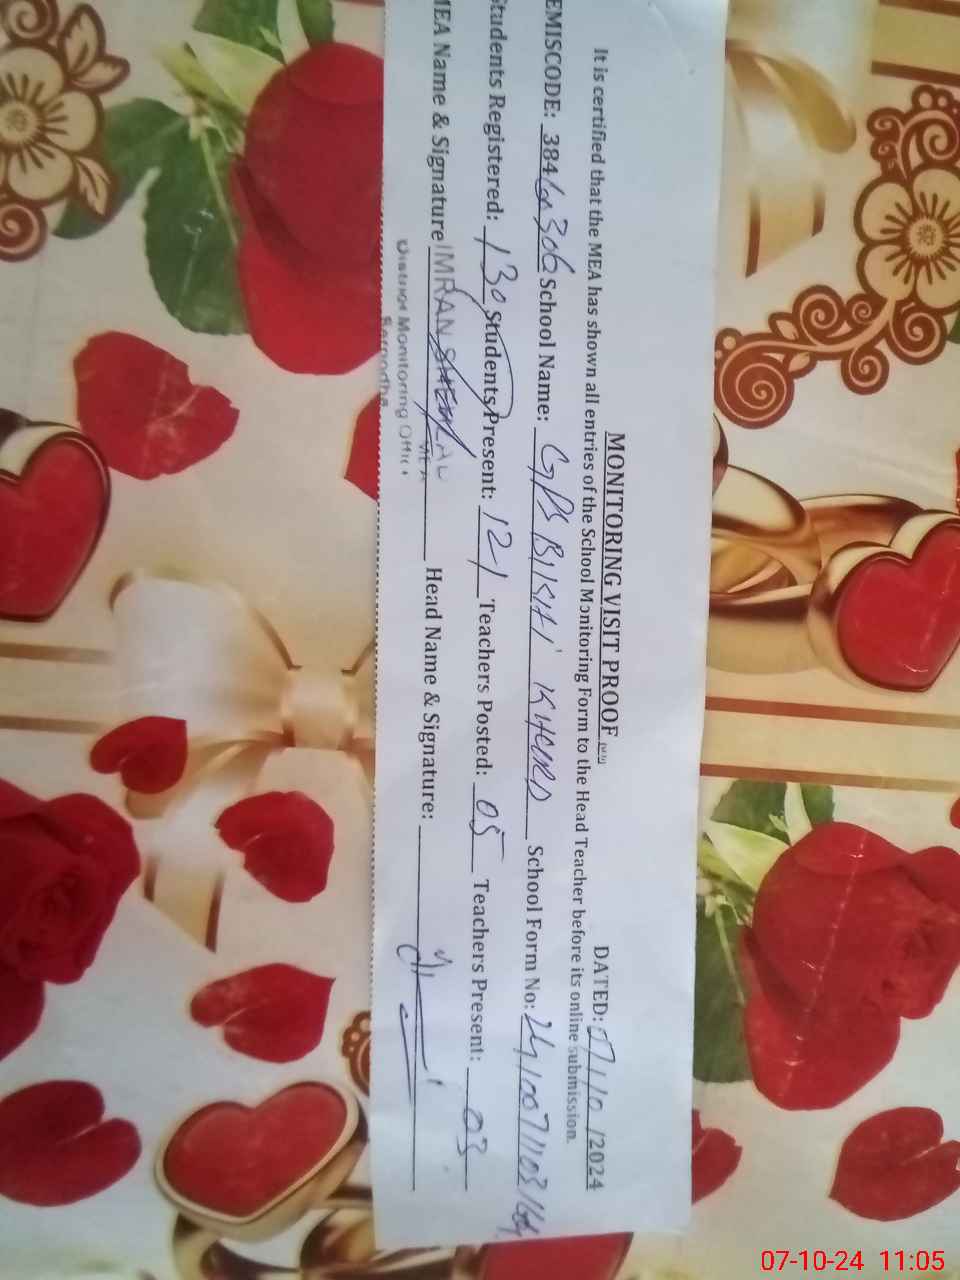 MONITORING VISIT PROOF
DATED: 07/10/2024
It is certified that the MEA has shown all entries of the School Monitoring Form to the Head Teacher before its online submission.
EMISCODE: 38460306 School Name: GPS BUSTI KHURD School Form No:
Students Registered: 130 Students Present: 121 Teachers Posted: 05 Teachers Present: 03
MEA Name & Signature IMRAN Head Name & Signature:
MEA
District Monitoring Office
Sargodha
07-10-24 11:05